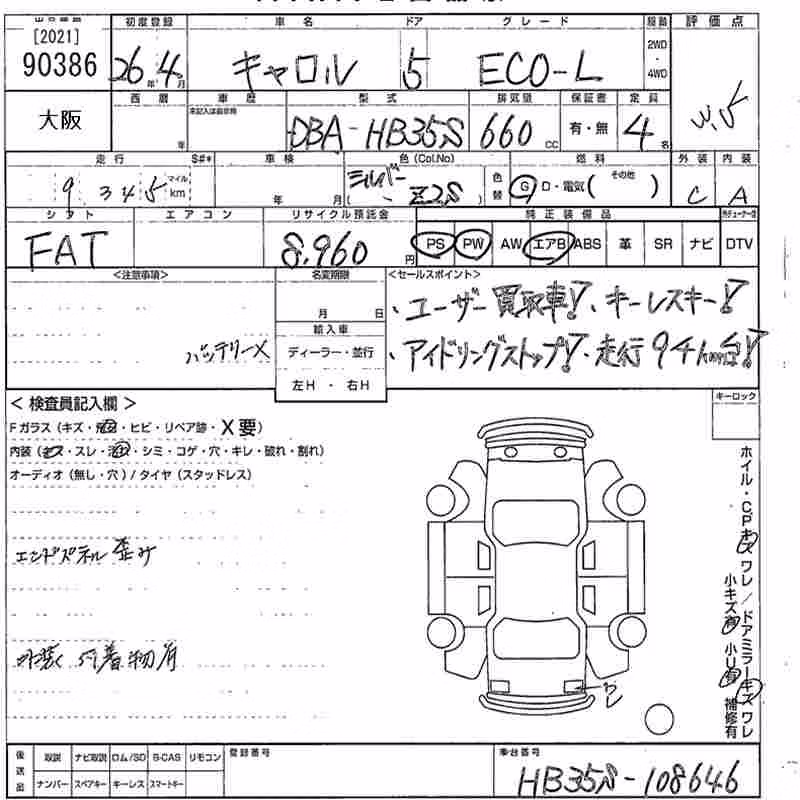 [2021]
90386
大阪
初度登録 車名 ドア グレード 服歴 評価点
26年4月 キャロル 5 ECO-L 2WD・4WD
西暦 車歴 型式 排気量 保証書 定員
年 未記入は自家用 DBA-HB35S 660cc 有・無 4名
走行 S#* 車検 色(Col.No) 燃料 外装 内装
9345 マイル km 年 月 シルバー Z2S 色替 G・D・電気( その他 ) C A
シフト エアコン リサイクル預託金 純正装備品
FAT 8,960円 PS PW AW エアB ABS 革 SR ナビ DTV
<注意事項> 名変期限 <セールスポイント>
月 日 、ユーザー買取車!、キーレスキー!
輸入車
バッテリーX ディーラー・並行 、アイドリングストップ!・走行94km台!
左H・右H
<検査員記入欄> キーロック
Fガラス(キズ・飛石・ヒビ・リペア跡・X要)
内装(キズ・スレ・汚れ・シミ・コゲ・穴・キレ・破れ・割れ)
オーディオ(無し・穴)/タイヤ(スタッドレス)
エンドパネル歪み
外装 付着物有
ワレ
ホイル・CPキズ ワレ/ドアミラーキズ ワレ
小キズ有 小U有 補修有
後送品 取説 ナビ取説 ロム/SD B-CAS リモコン 登録番号 車台番号
ナンバー スペアキー キーレス スマートキー HB35S-108646